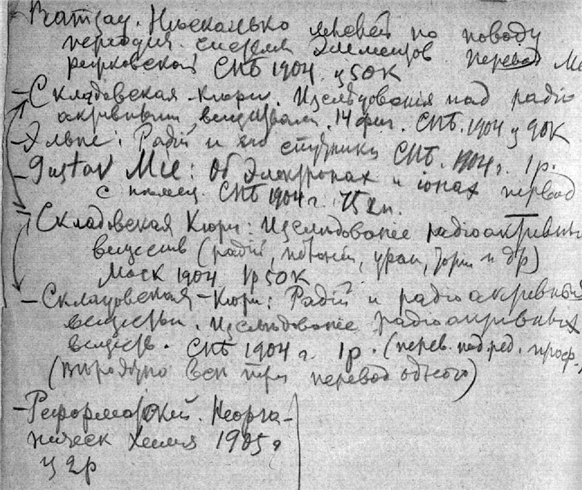 Рамзай. Несколько мыслей по поводу
период. системы элементов перевод
СПБ 1904 ц 50к
– Складовская-Кюри. Изслѣдованія над радіо
активными веществами. 14 фиг. СПБ. 1904 ц 90к
– Радій и его спутники СПБ. 1904 г. 1р.
– Gustav Mie: Об электронах и іонах перевод
с нѣмец. СПБ 1904 г. 75 коп.
Складовская Кюри: Изслѣдованіе радіоактивных
веществ (радій, полоній, уран, торій и др)
Моск 1904 1р 50к
– Складовская-Кюри: Радій и радіоактивныя
вещества. Изслѣдованіе радіоактивных
веществ. СПБ 1904 г. 1р. (перев. под ред. проф.)
(вѣроятно все три перевод одного)
– Реформатский. Неорга-
ническ химия 1905 г
ц 2р